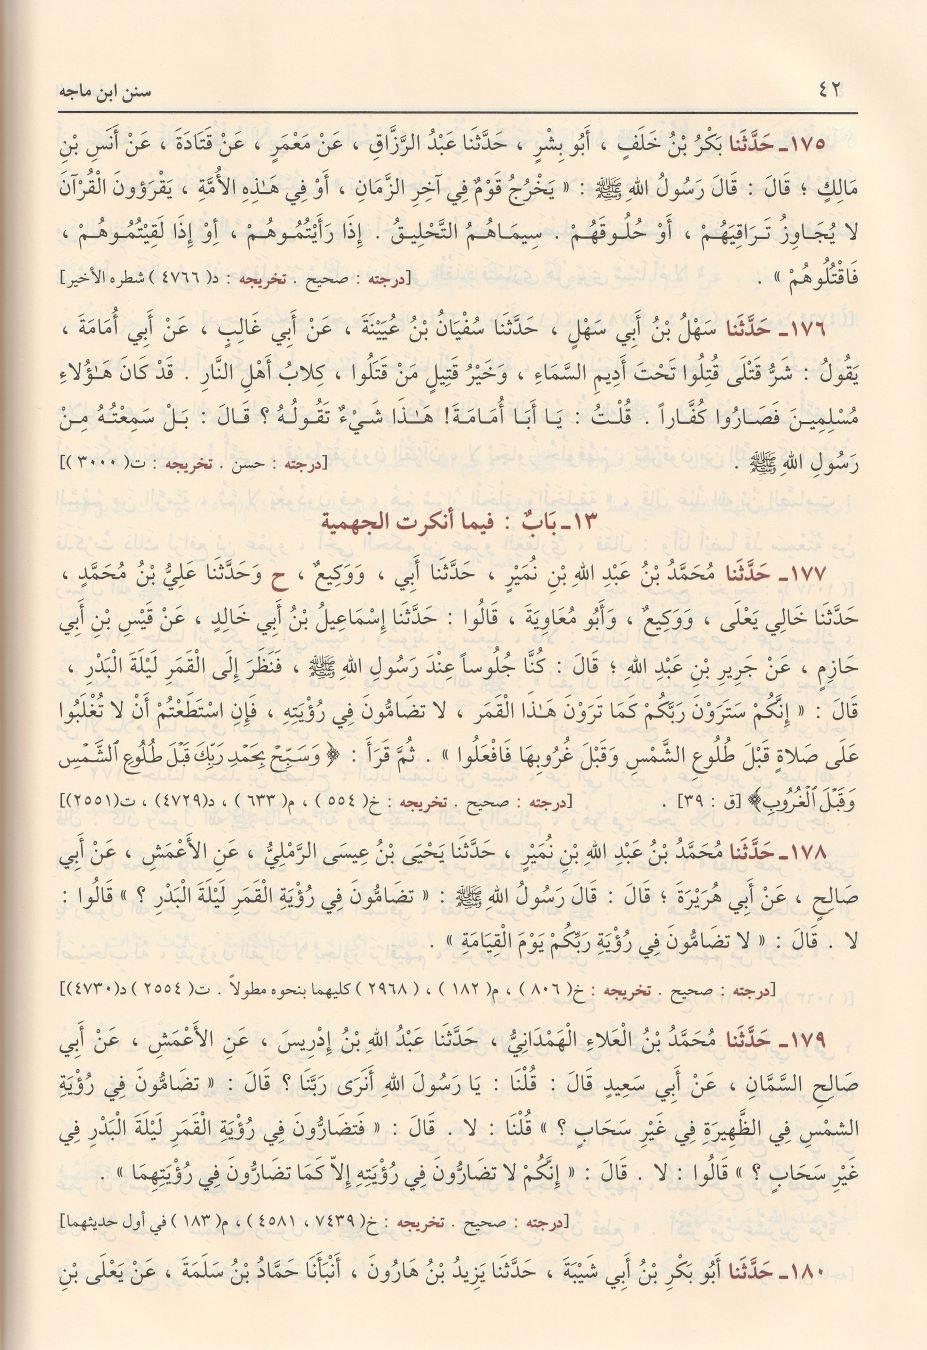 ٤٢ سنن ابن ماجه
١٧٥ـ حَدَّثَنا بَكْرُ بْنُ خَلَفٍ ، أَبُو بِشْرٍ ، حَدَّثَنا عَبْدُ الرَّزَّاقِ ، عَنْ مَعْمَرٍ ، عَنْ قَتَادَةَ ، عَنْ أَنَسِ بْنِ
مَالِكٍ ؛ قَالَ : قَالَ رَسُولُ اللهِ ﷺ : « يَخْرُجُ قَوْمٌ فِي آخِرِ الزَّمَانِ ، أَوْ فِي هَـٰذِهِ الأُمَّةِ ، يَقْرَؤونَ الْقُرْآنَ
لا يُجَاوِزُ تَرَاقِيَهُمْ ، أَوْ حُلُوقَهُمْ . سِيمَاهُمُ التَّحْلِيقُ . إِذَا رَأَيْتُمُوهُمْ ، أَوْ إِذَا لَقِيْتُمُوهُمْ ،
فَاقْتُلُوهُمْ » . [درجته : صحيح . تخريجه : د( ٤٧٦٦ ) شطره الأخير]
١٧٦ـ حَدَّثَنا سَهْلُ بْنُ أَبِي سَهْلٍ ، حَدَّثَنا سُفْيَانُ بْنُ عُيَيْنَةَ ، عَنْ أَبِي غَالِبٍ ، عَنْ أَبِي أُمَامَةَ ،
يَقُولُ : شَرُّ قَتْلَى قُتِلُوا تَحْتَ أَدِيمِ السَّمَاءِ ، وَخَيْرُ قَتِيلٍ مَنْ قَتَلُوا ، كِلابُ أَهْلِ النَّارِ . قَدْ كَانَ هَـٰؤُلاءِ
مُسْلِمِينَ فَصَارُوا كُفَّاراً . قُلْتُ : يَا أَبَا أُمَامَةَ! هَـٰذَا شَيْءٌ تَقُولُهُ ؟ قَالَ : بَلْ سَمِعْتُهُ مِنْ
رَسُولِ اللهِ ﷺ . [درجته : حسن . تخريجه : ت( ٣٠٠٠ )]
١٣ـ بَابٌ : فيما أنكرت الجهمية
١٧٧ـ حَدَّثَنا مُحَمَّدُ بْنُ عَبْدِ اللهِ بْنِ نُمَيْرٍ ، حَدَّثَنا أَبِي ، وَوَكِيعٌ ، ح وَحَدَّثَنا عَلِيُّ بْنُ مُحَمَّدٍ ،
حَدَّثَنا خَالِي يَعْلَى ، وَوَكِيعٌ ، وَأَبُو مُعَاوِيَةَ ، قَالُوا : حَدَّثَنا إِسْمَاعِيلُ بْنُ أَبِي خَالِدٍ ، عَنْ قَيْسِ بْنِ أَبِي
حَازِمٍ ، عَنْ جَرِيرِ بْنِ عَبْدِ اللهِ ؛ قَالَ : كُنَّا جُلُوساً عِنْدَ رَسُولِ اللهِ ﷺ ، فَنَظَرَ إِلَى الْقَمَرِ لَيْلَةَ الْبَدْرِ ،
قَالَ : « إِنَّكُمْ سَتَرَوْنَ رَبَّكُمْ كَمَا تَرَوْنَ هَـٰذَا الْقَمَر ، لا تضَامُّونَ فِي رُؤْيَتِهِ ، فَإِنِ اسْتَطَعْتُمْ أَنْ لا تُغْلَبُوا
عَلَى صَلاةٍ قَبْلَ طُلُوعِ الشَّمْسِ وَقَبْلَ غُرُوبِهَا فَافْعَلُوا » . ثُمَّ قَرَأَ : ﴿ وَسَبِّحْ بِحَمْدِ رَبِّكَ قَبْلَ طُلُوعِ الشَّمْسِ
وَقَبْلَ الْغُرُوبِ﴾ [ق : ٣٩] . [درجته : صحيح . تخريجه : خ( ٥٥٤ ) ، م( ٦٣٣ ) ، د(٤٧٢٩) ، ت(٢٥٥١)]
١٧٨ـ حَدَّثَنا مُحَمَّدُ بْنُ عَبْدِ اللهِ بْنِ نُمَيْرٍ ، حَدَّثَنا يَحْيَى بْنُ عِيسَى الرَّمْلِيُّ ، عَنِ الأَعْمَشِ ، عَنْ أَبِي
صَالِحٍ ، عَنْ أَبِي هُرَيْرَةَ ؛ قَالَ : قَالَ رَسُولُ اللهِ ﷺ : « تضَامُّونَ فِي رُؤْيَةِ الْقَمَرِ لَيْلَةَ الْبَدْرِ ؟ » قَالُوا :
لا . قَالَ : « لا تضَامُّونَ فِي رُؤْيَةِ رَبِّكُمْ يَوْمَ الْقِيَامَةِ » .
[درجته : صحيح . تخريجه : خ( ٨٠٦ ) ، م( ١٨٢ ) ، ( ٢٩٦٨ ) كليهما بنحوه مطولاً . ت( ٢٥٥٤ ) د(٤٧٣٠)]
١٧٩ـ حَدَّثَنا مُحَمَّدُ بْنُ الْعَلاءِ الْهَمْدَانِيُّ ، حَدَّثَنا عَبْدُ اللهِ بْنُ إِدْرِيسَ ، عَنِ الأَعْمَشِ ، عَنْ أَبِي
صَالِحِ السَّمَّانِ ، عَنْ أَبِي سَعِيدٍ قَالَ : قُلْنَا : يَا رَسُولَ اللهِ أَنَرَى رَبَّنَا ؟ قَالَ : « تضَامُّونَ فِي رُؤْيَةِ
الشمْسِ فِي الظَّهِيرَةِ فِي غَيْرِ سَحَابٍ ؟ » قُلْنَا : لا . قَالَ : « فَتضَارُّونَ فِي رُؤْيَةِ الْقَمَرِ لَيْلَةَ الْبَدْرِ فِي
غَيْرِ سَحَابٍ ؟ » قَالُوا : لا . قَالَ : « إِنَّكُمْ لا تضَارُّونَ فِي رُؤْيَتِهِ إِلاّ كَمَا تضَارُّونَ فِي رُؤْيَتِهِمَا » .
[درجته : صحيح . تخريجه : خ( ٧٤٣٩ ، ٤٥٨١ ) ، م( ١٨٣ ) في أول حديثهما]
١٨٠ـ حَدَّثَنا أَبُو بَكْرِ بْنُ أَبِي شَيْبَةَ ، حَدَّثَنا يَزِيدُ بْنُ هَارُونَ ، أَنْبَأَنَا حَمَّادُ بْنُ سَلَمَةَ ، عَنْ يَعْلَى بْنِ